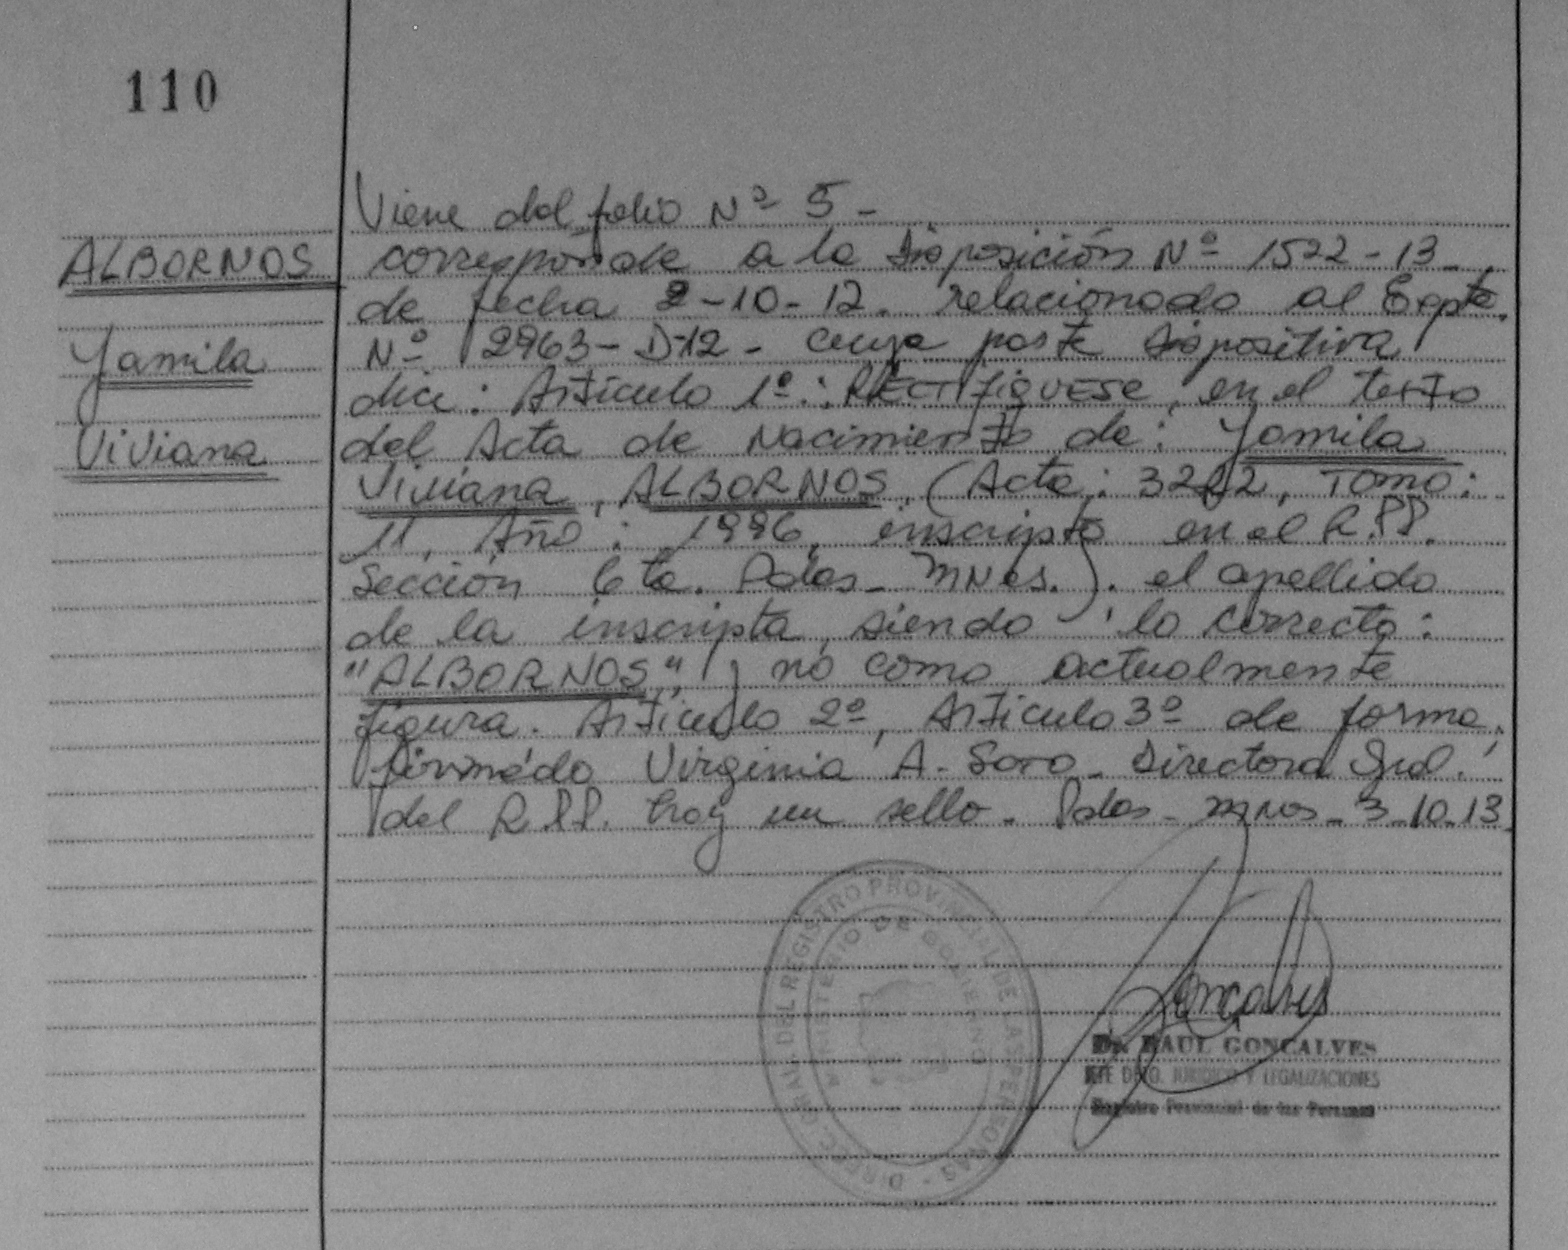 110
ALBORNOS
Yamila
Viviana
Viene del folio Nº 5 -
corresponde a la Disposición Nº 1522-13
de fecha 2-10-12. relacionado al Expte.
Nº 2963-D-12 - cuya parte dispositiva
dice: Artículo 1º: RECTIFIQUESE, en el texto
del Acta de Nacimiento de: Yamila
Viviana, ALBORNOS, (Acta: 3202, Tomo:
11, Año: 1996, inscripta en el R.P.P.
Sección 6ta. Pdas- Mnes.). el apellido
de la inscripta, siendo lo correcto:
"ALBORNOS", y no como actualmente
figura. Artículo 2º, Artículo 3º de forma,
firmado Virginia A. Soto - Directora Gral.
del R.P.P. hay un sello. Pdas- Mnes- 3-10-13
DIREC. GRAL. DEL REGISTRO PROVINCIAL DE LAS PERSONAS -
MINISTERIO DE GOBIERNO
Goncalves
Dr. RAUL GONCALVES
JEFE DPTO. JURIDICO Y LEGALIZACIONES
Registro Provincial de las Personas